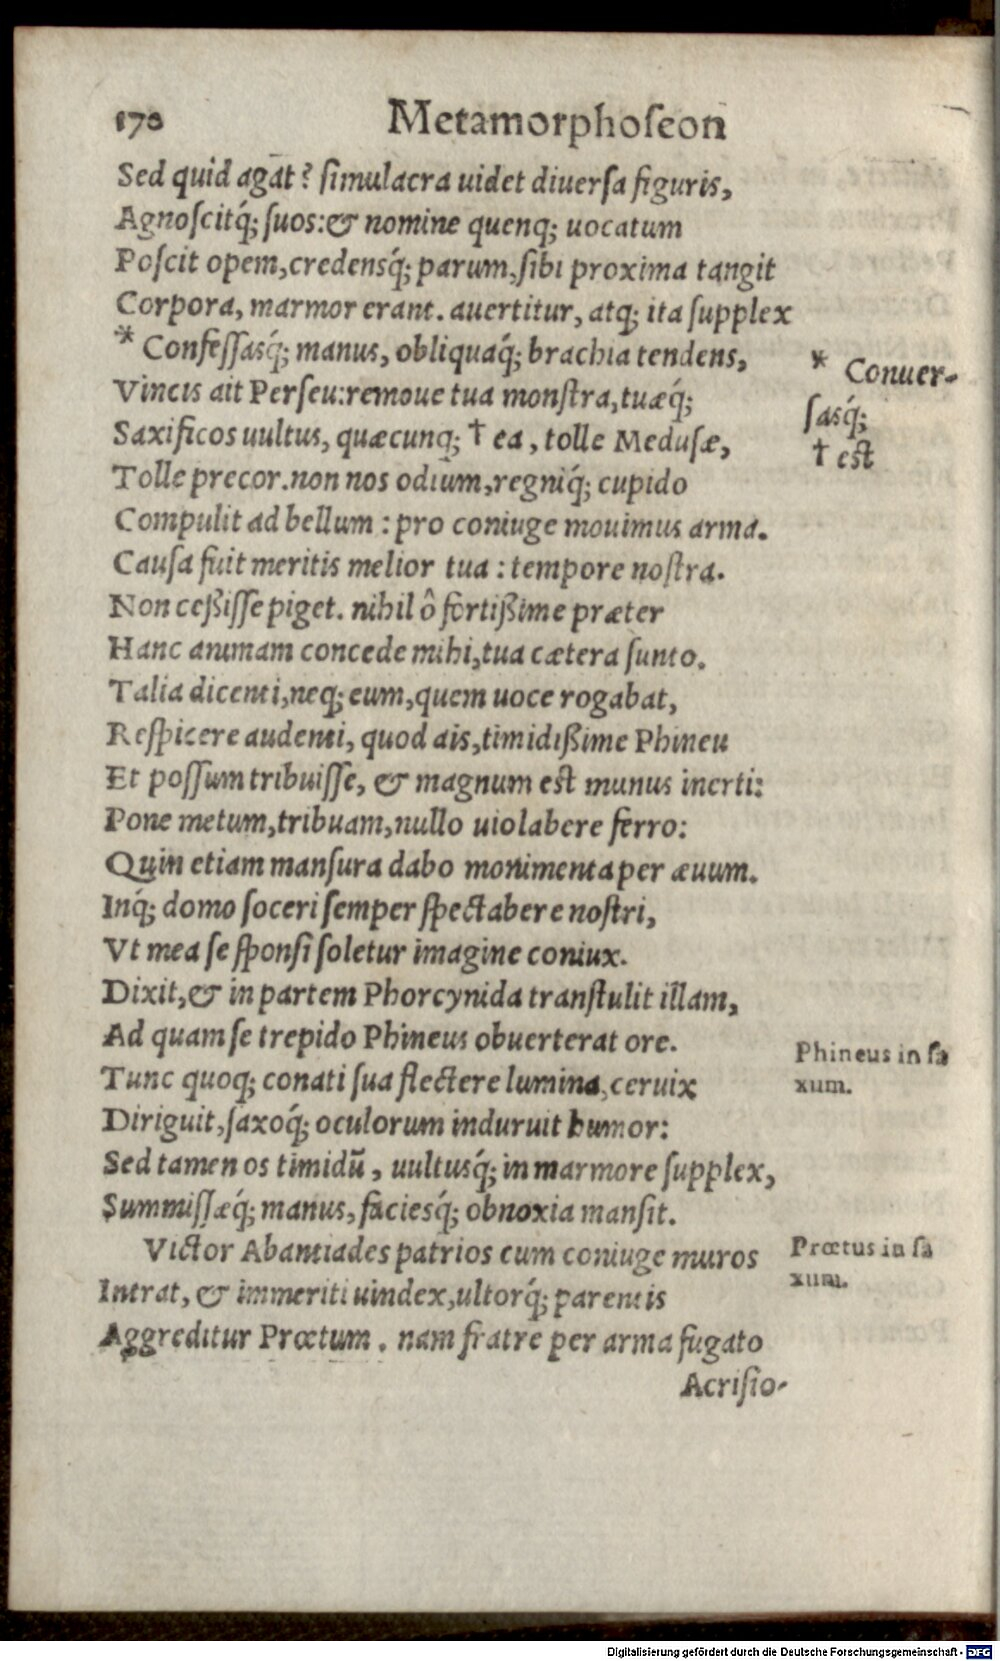 170 Metamorphoſeon
Sed quid agāt? ſimulacra uidet diuerſa figuris,
Agnoſcitq́; ſuos:& nomine quenq; uocatum
Poſcit opem,credensq́; parum,ſibi proxima tangit
Corpora, marmor erant. auertitur, atq; ita ſupplex
* Confeſſasq́; manus, obliquaq́; brachia tendens,
* Conuer-
ſasq́;
Vincis ait Perſeu:remoue tua monſtra,tuæq́;
Saxificos uultus, quæcunq; † ea, tolle Meduſæ,
† est
Tolle precor.non nos odium,regniq́; cupido
Compulit ad bellum : pro coniuge mouimus arma.
Cauſa fuit meritis melior tua : tempore noſtra.
Non ceßiſſe piget. nihil ô fortißime præter
Hanc animam concede mihi,tua cætera ſunto.
Talia dicenti,neq; eum,quem uoce rogabat,
Reſpicere audenti, quod ais,timidißime Phineu
Et poſſum tribuiſſe, & magnum est munus inerti:
Pone metum,tribuam,nullo uiolabere ferro:
Quin etiam manſura dabo monimenta per æuum.
Inq́; domo ſoceri ſemper ſpectabere noſtri,
Vt mea ſe ſponſi ſoletur imagine coniux.
Dixit,& in partem Phorcynida tranſtulit illam,
Ad quam ſe trepido Phineus obuerterat ore.
Phineus in ſa
xum.
Tunc quoq; conati ſua flectere lumina,ceruix
Diriguit,ſaxoq́; oculorum induruit humor:
Sed tamen os timidū, uultusq́; in marmore ſupplex,
Summiſſæq́; manus, faciesq́; obnoxia manſit.
Victor Abantiades patrios cum coniuge muros
Prœtus in ſa
xum.
Intrat, & immeriti uindex,ultorq́; parentis
Aggreditur Prœtum. nam fratre per arma fugato
Acriſio-
Digitalisierung gefördert durch die Deutsche Forschungsgemeinschaft - DFG